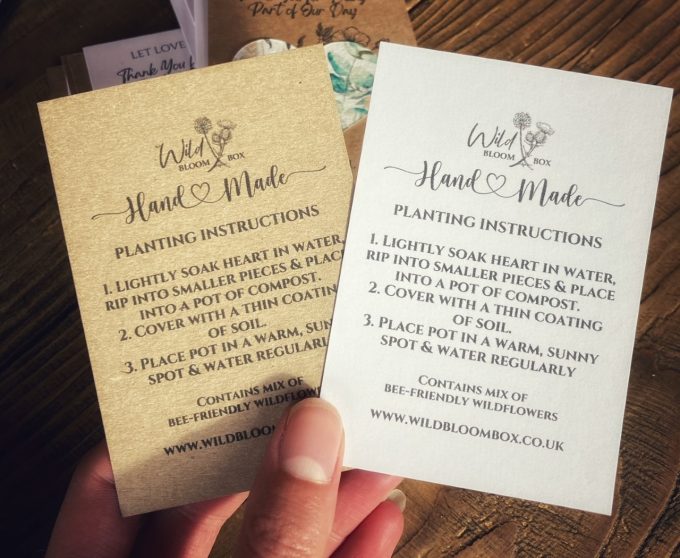 Part of Our Day
LET LOVE
Thank You
Wild
BLOOM BOX
Hand Made
PLANTING INSTRUCTIONS
1. LIGHTLY SOAK HEART IN WATER,
RIP INTO SMALLER PIECES & PLACE
INTO A POT OF COMPOST.
2. COVER WITH A THIN COATING
OF SOIL.
3. PLACE POT IN A WARM, SUNNY
SPOT & WATER REGULARLY
CONTAINS MIX OF
BEE-FRIENDLY WILDFLOWERS
WWW.WILDBLOOM
Wild
BLOOM BOX
Hand Made
PLANTING INSTRUCTIONS
1. LIGHTLY SOAK HEART IN WATER,
RIP INTO SMALLER PIECES & PLACE
INTO A POT OF COMPOST.
2. COVER WITH A THIN COATING
OF SOIL.
3. PLACE POT IN A WARM, SUNNY
SPOT & WATER REGULARLY
CONTAINS MIX OF
BEE-FRIENDLY WILDFLOWERS
WWW.WILDBLOOMBOX.CO.UK